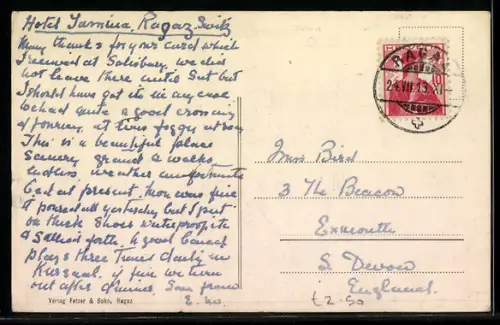 Hotel Tamina, Ragaz, Switz.
Many thanks for your card which
I received at Salisbury, we did
not leave there until Sat but
I should have got it in any case
We had quite a good crossing
& journey, at times foggy at sea
This is a beautiful place
Scenery grand & walks
endless, weather unfortunate
bad at present, Mon was fine
& poured all yesterday but I put
on thick shoes waterproof etc
& sallied forth. A good band
plays three times daily in
Kursaal. if fine we turn
out after dinner
Verlag Fetzer & Sohn, Ragaz
HELVETIA
10
RAGAZ
24.VII.13.XI
Miss Bird
3 The Beacon
Exmouth
S. Devon
England.
£2-50